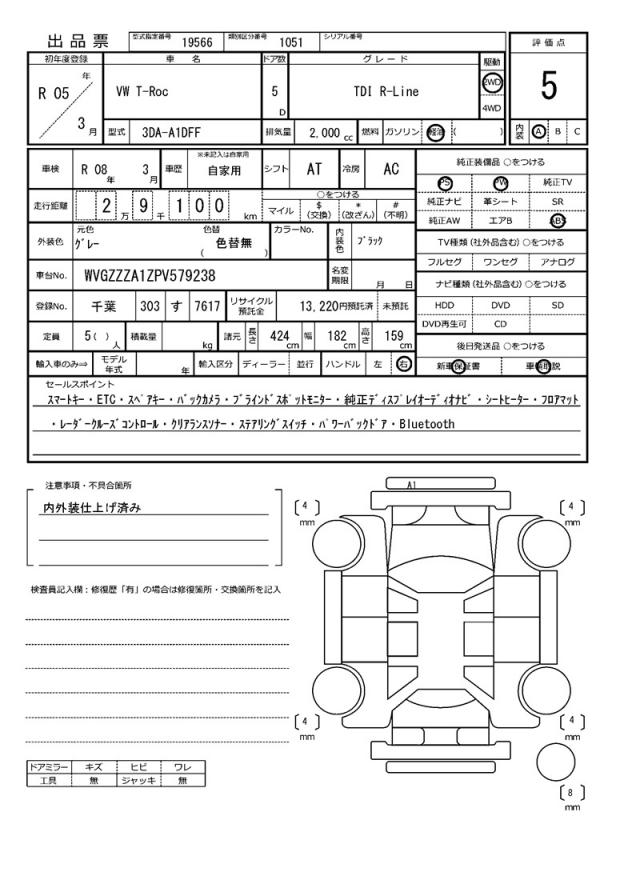 出品票 型式指定番号 19566 類別区分番号 1051 シリアル番号
初年度登録 車名 ドア数 グレード 駆動 評価点
R 05 年 3 月 VW T-Roc 5 D TDI R-Line 2WD 4WD 5
型式 3DA-A1DFF 排気量 2,000 cc 燃料 ガソリン 軽油 ( ) 内装 A B C
車検 R 08 年 3 月 車歴 ※未記入は自家用 自家用 シフト AT 冷房 AC 純正装備品 ○をつける
PS PW 純正TV
走行距離 2 万 9 千 1 0 0 km ○をつける マイル $ (交換) * (改ざん) # (不明) 純正ナビ 革シート SR
純正AW エアB ABS
外装色 元色 グレー 色替 色替無 ( ) カラーNo. 内装色 ブラック TV種類 (社外品含む) ○をつける
フルセグ ワンセグ アナログ
車台No. WVGZZZA1ZPV579238 名変期限 月 日 ナビ種類 (社外品含む) ○をつける
登録No. 千葉 303 す 7617 リサイクル預託金 13,220円預託済 未預託 HDD DVD SD
DVD再生可 CD
定員 5( ) 人 積載量 kg 諸元 長さ 424 cm 幅 182 cm 高さ 159 cm 後日発送品 ○をつける
輸入車のみ⇒ モデル年式 年 輸入区分 ディーラー 並行 ハンドル 左 右 新車保証書 車輌取説
セールスポイント
スマートキー・ETC・スペアキー・バックカメラ・ブラインドスポットモニター・純正ディスプレイオーディオナビ・シートヒーター・フロアマット
・レーダークルーズコントロール・クリアランスソナー・ステアリングスイッチ・パワーバックドア・Bluetooth
注意事項・不具合箇所
内外装仕上げ済み
検査員記入欄：修復歴「有」の場合は修復箇所・交換箇所を記入
A1
4 mm
4 mm
4 mm
4 mm
8 mm
ドアミラー キズ ヒビ ワレ
工具 無 ジャッキ 無